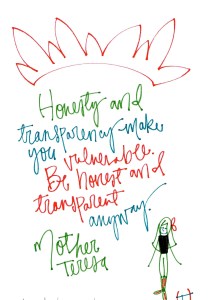 Honesty and
transparency make
you vulnerable.
Be honest and
transparent
anyway.
Mother
Teresa